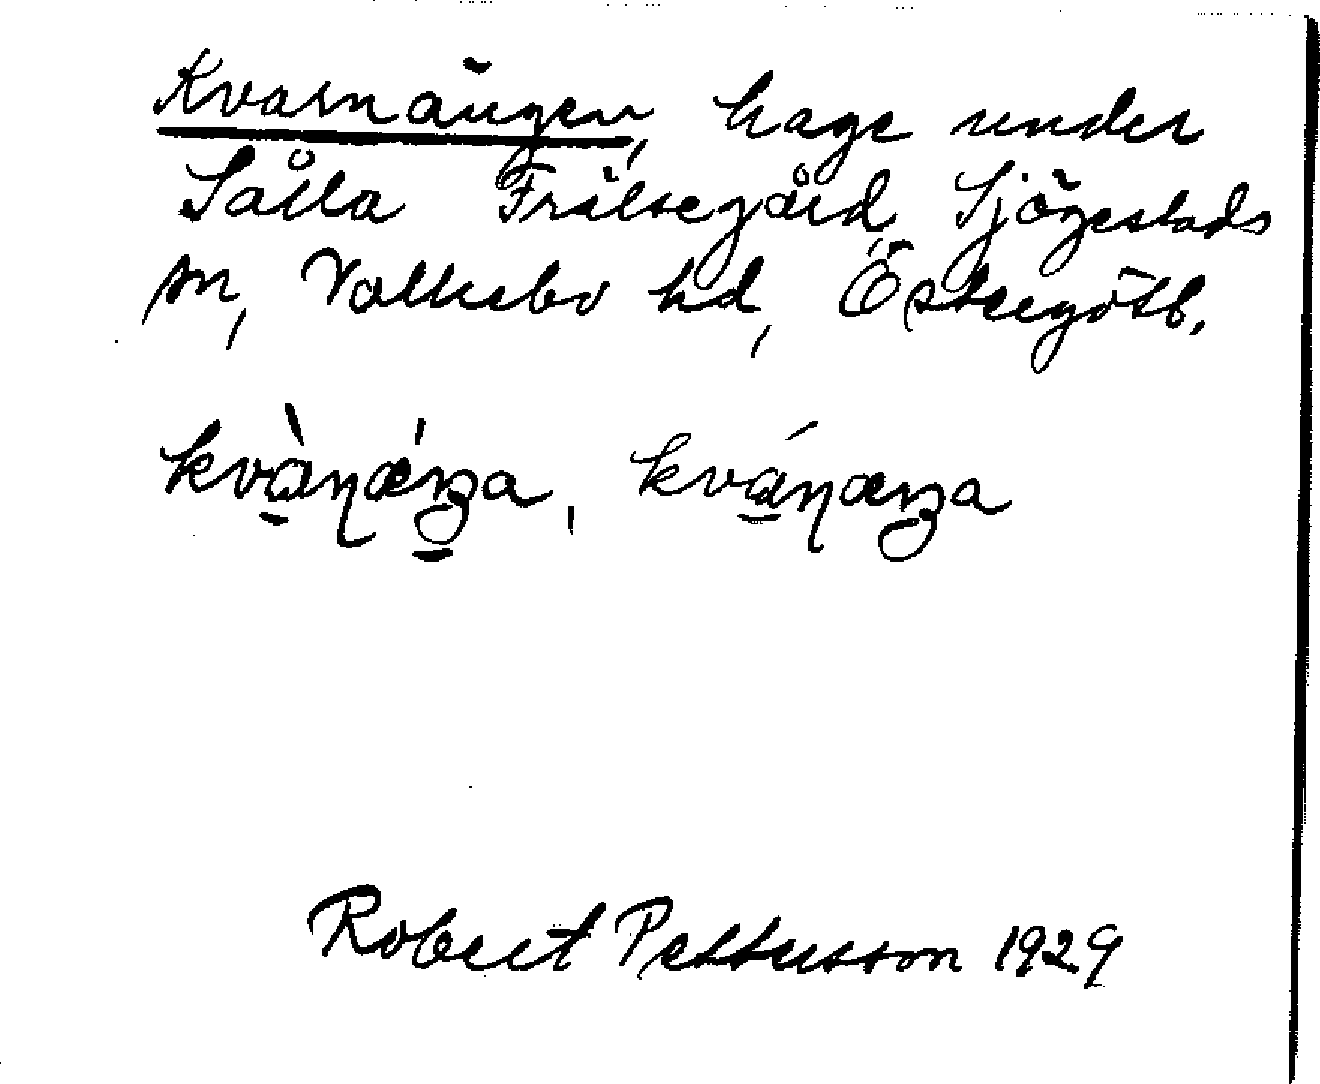 Kvarnängen, hage under
Sålla Frälsegård, Sjögestads
sn, Valkebo hd, Östergötl.
kvàṇǽŋa, kváṇæŋa
Robert Pettersson 1929